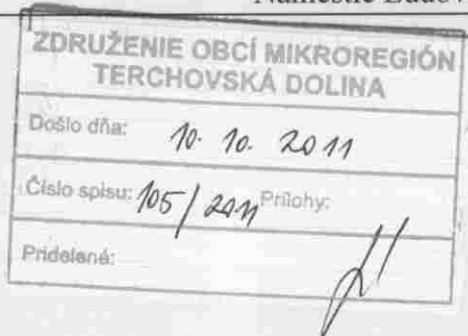 ZDRUŽENIE OBCÍ MIKROREGIÓN
TERCHOVSKÁ DOLINA
Došlo dňa: 10. 10. 2011
Číslo spisu: 105/2011 Prílohy:
Pridelené: